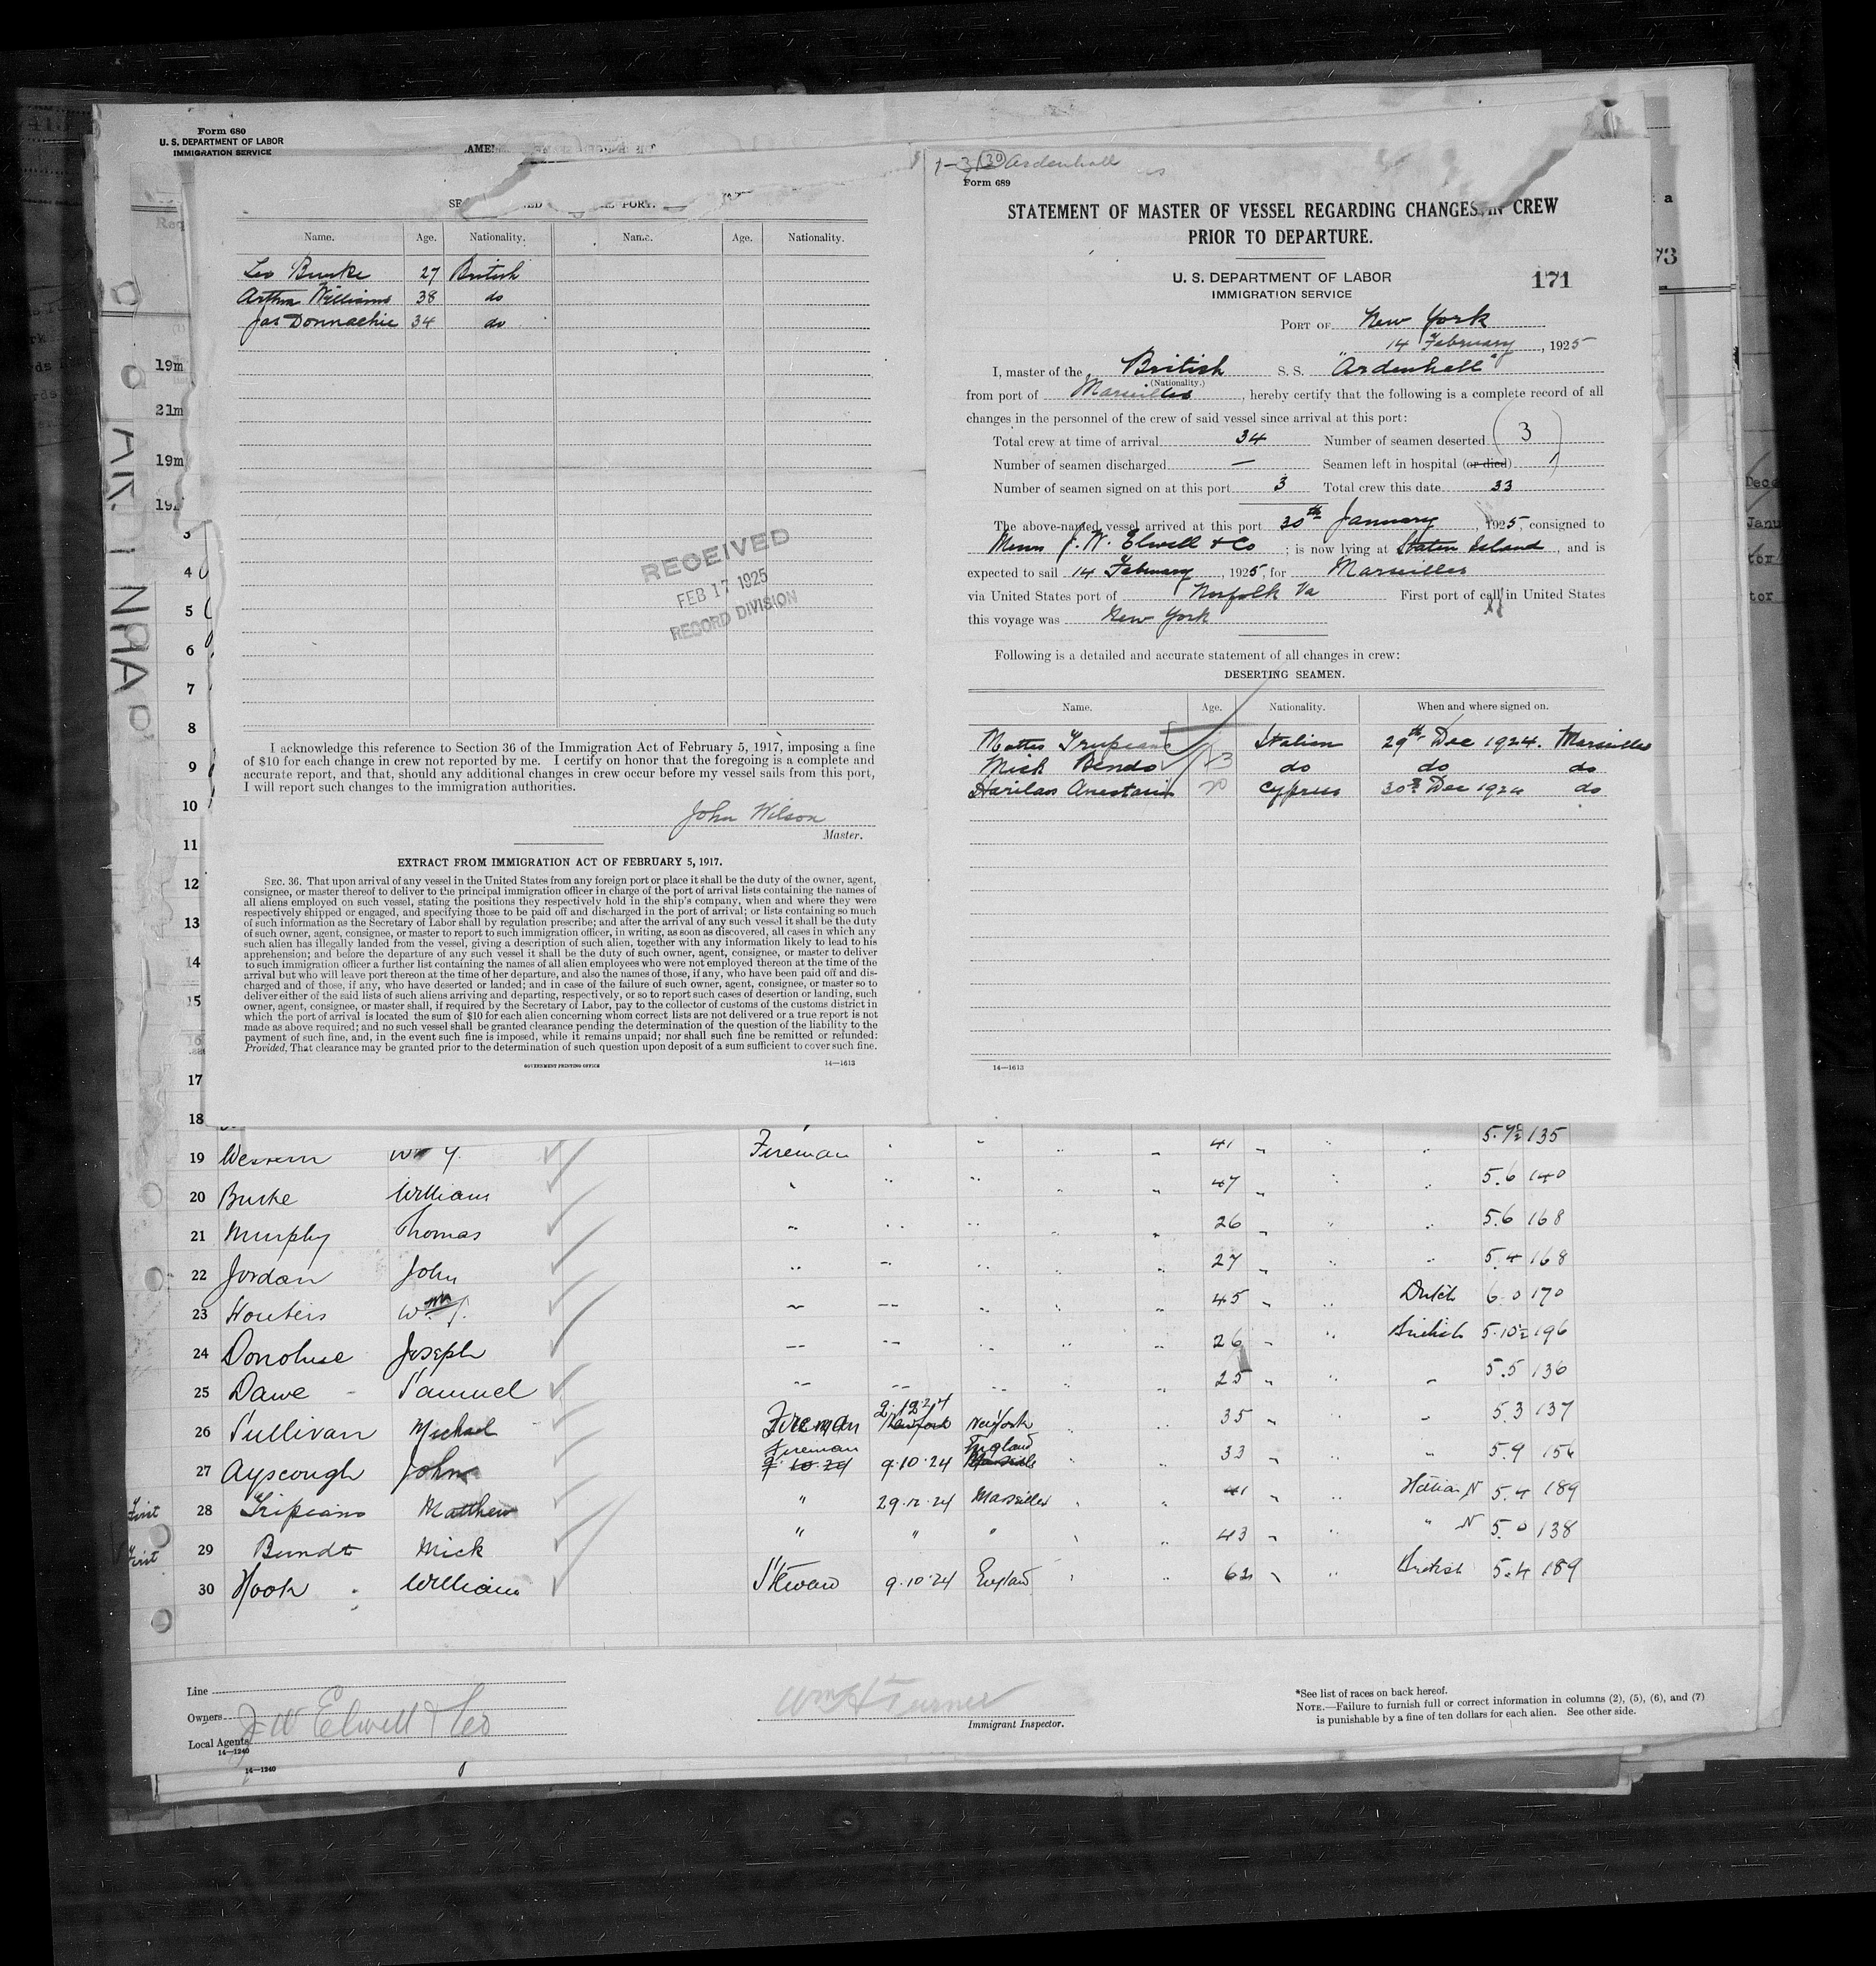 Form 680
U. S. DEPARTMENT OF LABOR
IMMIGRATION SERVICE
Name. Age. Nationality. Name. Age. Nationality.
Leo Burke 27 British
Arthur Williams 38 do
Jas Donnachie 34 do
RECEIVED
FEB 17 1925
RECORD DIVISION
I acknowledge this reference to Section 36 of the Immigration Act of February 5, 1917, imposing a fine
of $10 for each change in crew not reported by me. I certify on honor that the foregoing is a complete and
accurate report, and that, should any additional changes in crew occur before my vessel sails from this port,
I will report such changes to the immigration authorities.
John Wilson
Master.
EXTRACT FROM IMMIGRATION ACT OF FEBRUARY 5, 1917.
SEC. 36. That upon arrival of any vessel in the United States from any foreign port or place it shall be the duty of the owner, agent,
consignee, or master thereof to deliver to the principal immigration officer in charge of the port of arrival lists containing the names of
all aliens employed on such vessel, stating the positions they respectively hold in the ship's company, when and where they were
respectively shipped or engaged, and specifying those to be paid off and discharged in the port of arrival; or lists containing so much
of such information as the Secretary of Labor shall by regulation prescribe; and after the arrival of any such vessel it shall be the duty
of such owner, agent, consignee, or master to report to such immigration officer, in writing, as soon as discovered, all cases in which any
such alien has illegally landed from the vessel, giving a description of such alien, together with any information likely to lead to his
apprehension; and before the departure of any such vessel it shall be the duty of such owner, agent, consignee, or master to deliver
to such immigration officer a further list containing the names of all alien employees who were not employed thereon at the time of the
arrival but who will leave port thereon at the time of her departure, and also the names of those, if any, who have been paid off and dis-
charged and of those, if any, who have deserted or landed; and in case of the failure of such owner, agent, consignee, or master so to
deliver either of the said lists of such aliens arriving and departing, respectively, or so to report such cases of desertion or landing, such
owner, agent, consignee, or master shall, if required by the Secretary of Labor, pay to the collector of customs of the customs district in
which the port of arrival is located the sum of $10 for each alien concerning whom correct lists are not delivered or a true report is not
made as above required; and no such vessel shall be granted clearance pending the determination of the question of the liability to the
payment of such fine, and, in the event such fine is imposed, while it remains unpaid; nor shall such fine be remitted or refunded:
Provided, That clearance may be granted prior to the determination of such question upon deposit of a sum sufficient to cover such fine.
GOVERNMENT PRINTING OFFICE 14—1613
30 Ardenhall
Form 689
STATEMENT OF MASTER OF VESSEL REGARDING CHANGES IN CREW
PRIOR TO DEPARTURE.
U. S. DEPARTMENT OF LABOR
IMMIGRATION SERVICE
171
PORT OF New York
14 February, 1925
I, master of the British S. S. "Ardenhall"
(Nationality.)
from port of Marseilles, hereby certify that the following is a complete record of all
changes in the personnel of the crew of said vessel since arrival at this port:
Total crew at time of arrival 34 Number of seamen deserted 3
Number of seamen discharged — Seamen left in hospital (or died) 1
Number of seamen signed on at this port 3 Total crew this date 33
The above-named vessel arrived at this port 30th January, 1925, consigned to
Messrs J. W. Elwell & Co; is now lying at Staten Island, and is
expected to sail 14 February, 1925, for Marseilles
via United States port of Norfolk Va First port of call in United States
this voyage was New York
Following is a detailed and accurate statement of all changes in crew:
DESERTING SEAMEN.
Name. Age. Nationality. When and where signed on.
Italian 29th Dec 1924. Marseilles
Mick Bendo 43 do do do
Cyprus 30th Dec 1924 do
14—1613
19m
21m
19m
3
4
5
6
7
8
9
10
11
12
13
14
15
17
18
5.7½ 135
19 Western Wm Fireman 41
20 Burke William 47 5.6 140
21 Murphy Thomas 26 5.6 168
22 Jordan John 27 5.4 168
23 Wouters Wm 45 Dutch 6.0 170
24 Donohue Joseph 26 British 5.10½ 196
25 Dawe Samuel 25 5.5 136
26 Sullivan Michael Fireman 2.12.24 New York 35 5.3 137
27 Ayscough John Fireman 9.10.24 England 33 5.9 156
First 28 Tripiano Matthew " 29.12.24 Marseilles 41 Italian N 5.4 189
First 29 Bundo Mick " " " 43 " N 5.0 138
30 Hook William Steward 9.10.24 England 62 British 5.4 189
Line
Owners
Local Agents J W Elwell & Co
14—1240
Wm H Turner
Immigrant Inspector.
*See list of races on back hereof.
NOTE.—Failure to furnish full or correct information in columns (2), (5), (6), and (7)
is punishable by a fine of ten dollars for each alien. See other side.
14—1240